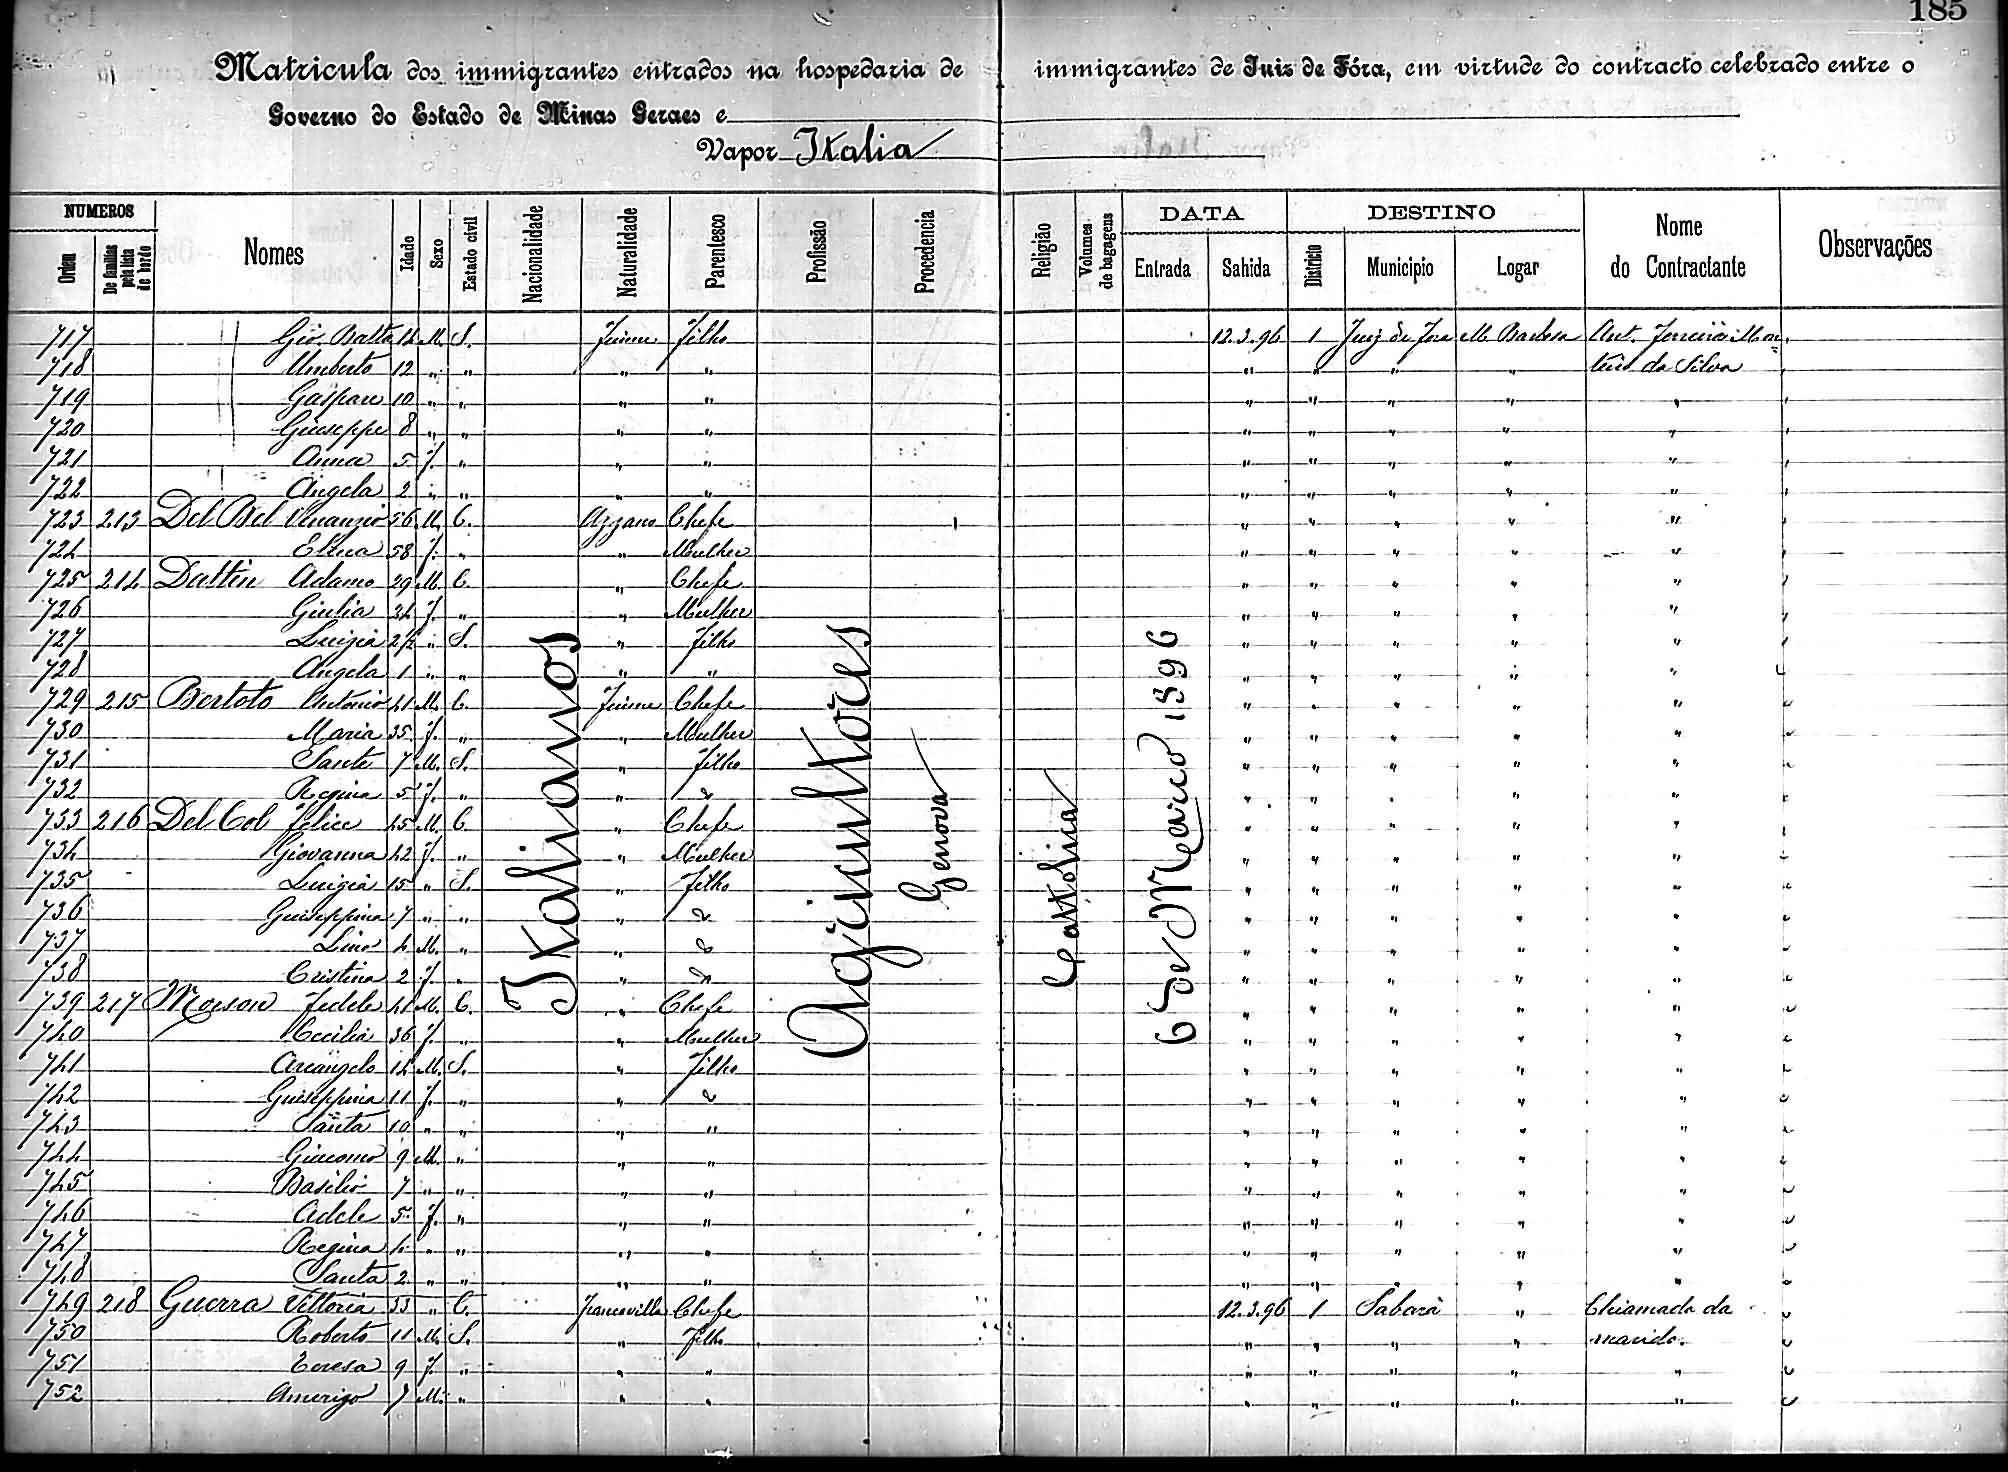 185
Matricula dos immigrantes entrados na hospedaria de immigrantes de Juiz de Fóra, em virtude do contracto celebrado entre o
Governo do Estado de Minas Geraes e
Vapor Italia
NUMEROS DATA DESTINO
Ordem De familias pela lista de bordo Nomes Idade Sexo Estado civil Nacionalidade Naturalidade Parentesco Profissão Procedencia Religião Volumes de bagagens Entrada Sahida Districto Municipio Logar Nome do Contractante Observações
Italianos Agricultores Genova Catholica 6 de Março 1896
717 Gio. Batta 14 M. S. Fiume Filho 12.3.96 1 Juiz de Fora M. Barbosa Ant. Ferreira Mon
718 Umberto 12 " " " " " " " " teiro da Silva
719 Gaspare 10 " " " " " " " " "
720 Giuseppe 8 " " " " " " " " "
721 Anna 5 f. " " " " " " " "
722 Angela 2 " " " " " " " " "
723 213 Del Bel Venanzio 56 M. C. Azzano Chefe " " " " "
724 58 f. " " Mulher " " " " "
725 214 Dattin Adamo 29 M. C. " Chefe " " " " "
726 Giulia 34 f. " " Mulher " " " " "
727 Luigia 2 1/2 " S. " Filho " " " " "
728 Angela 1 " " " " " " " " "
729 215 Bertoto Antonio 41 M. C. Fiume Chefe " " " " "
730 Maria 35 f. " " Mulher " " " " "
731 Sante 7 M. S. " Filho " " " " "
732 Regina 5 f. " " " " " " " "
733 216 Del Col Felice 45 M. C. " Chefe " " " " "
734 Giovanna 42 f. " " Mulher " " " " "
735 Luigia 15 " S. " Filho " " " " "
736 Giuseppina 7 " " " " " " " " "
737 Lino 4 M. " " " " " " " "
738 Cristina 2 f. " " " " " " " "
739 217 Moison Fedele 41 M. C. " Chefe " " " " "
740 Cecilia 36 f. " " Mulher " " " " "
741 Arcangelo 14 M. S. " Filho " " " " "
742 Giuseppina 11 f. " " " " " " " "
743 Santa 10 " " " " " " " " "
744 Giacomo 9 M. " " " " " " " "
745 Basilio 7 " " " " " " " " "
746 Adele 5 f. " " " " " " " "
747 Regina 4 " " " " " " " " "
748 Santa 2 " " " " " " " " "
749 218 Guerra Vittoria 33 " C. Francavilla Chefe 12.3.96 1 Sabará " Chiamada da
750 Roberto 11 M. S. " Filho " " " " marido.
751 Teresa 9 f. " " " " " " " "
752 Amerigo 7 M. " " " " " " " "